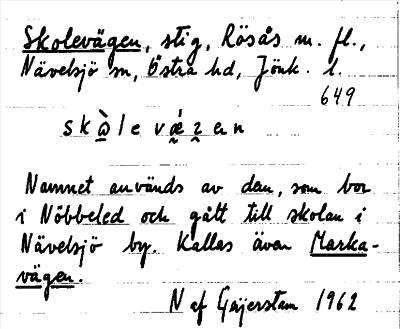 Skolevägen, stig, Rösås m. fl.,
Nävelsjö sn, Östra hd, Jönk. l.
649
skὰ̱le vǽzɐn
Namnet används av dem, som bor
i Nöbbeled och gått till skolan i
Nävelsjö by. Kallas även Marka-
vägen.
N af Geijerstam 1962